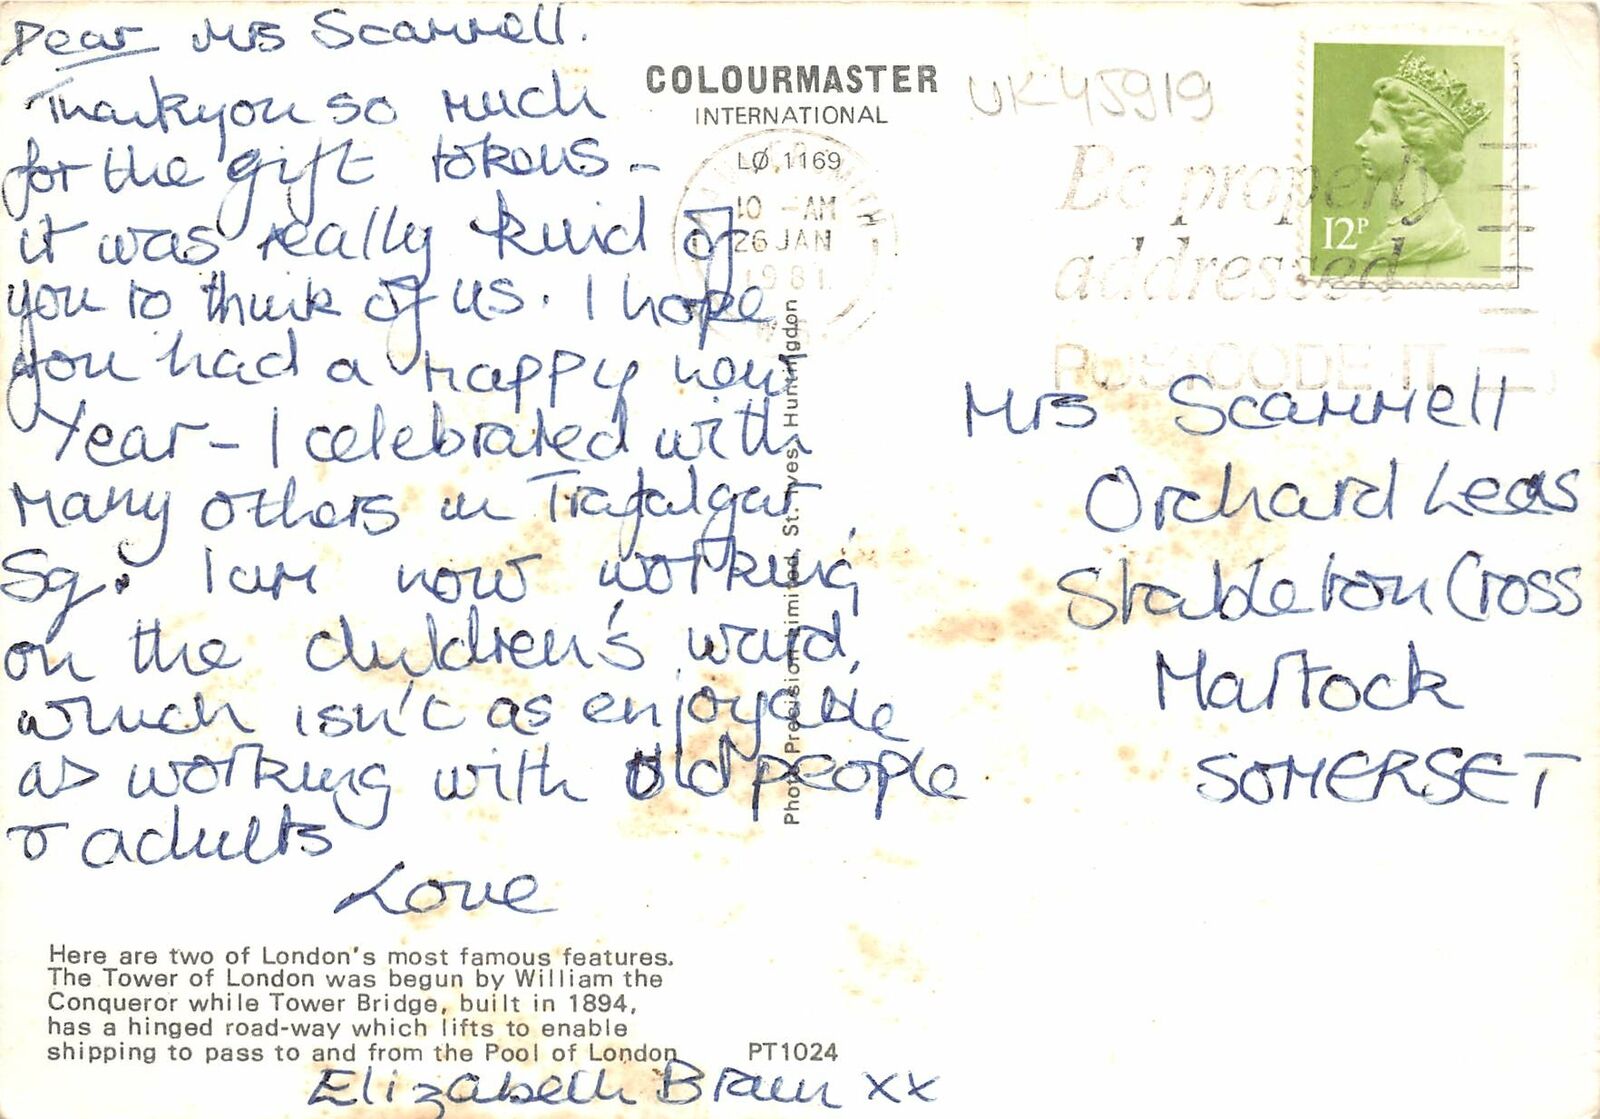 Dear Mrs Scammell.
Thankyou so much
for the gift tokens -
it was really kind of
you to think of us. I hope
you had a happy new
Year - I celebrated with
many others in Trafalgar
Sq. I am now working
on the children's ward,
which isn't as enjoyable
as working with old people
& adults
Love
Elizabeth Bram xx
COLOURMASTER
INTERNATIONAL
UK45919
LØ.1169
10 - AM
26 JAN
1981
Be properly
addressed
POSTCODE IT
12P
Mrs Scammell
Orchard Leas
Stableton Cross
Martock
SOMERSET
Photo Precision Limited, St. Ives, Huntingdon
Here are two of London's most famous features.
The Tower of London was begun by William the
Conqueror while Tower Bridge, built in 1894,
has a hinged road-way which lifts to enable
shipping to pass to and from the Pool of London
PT1024